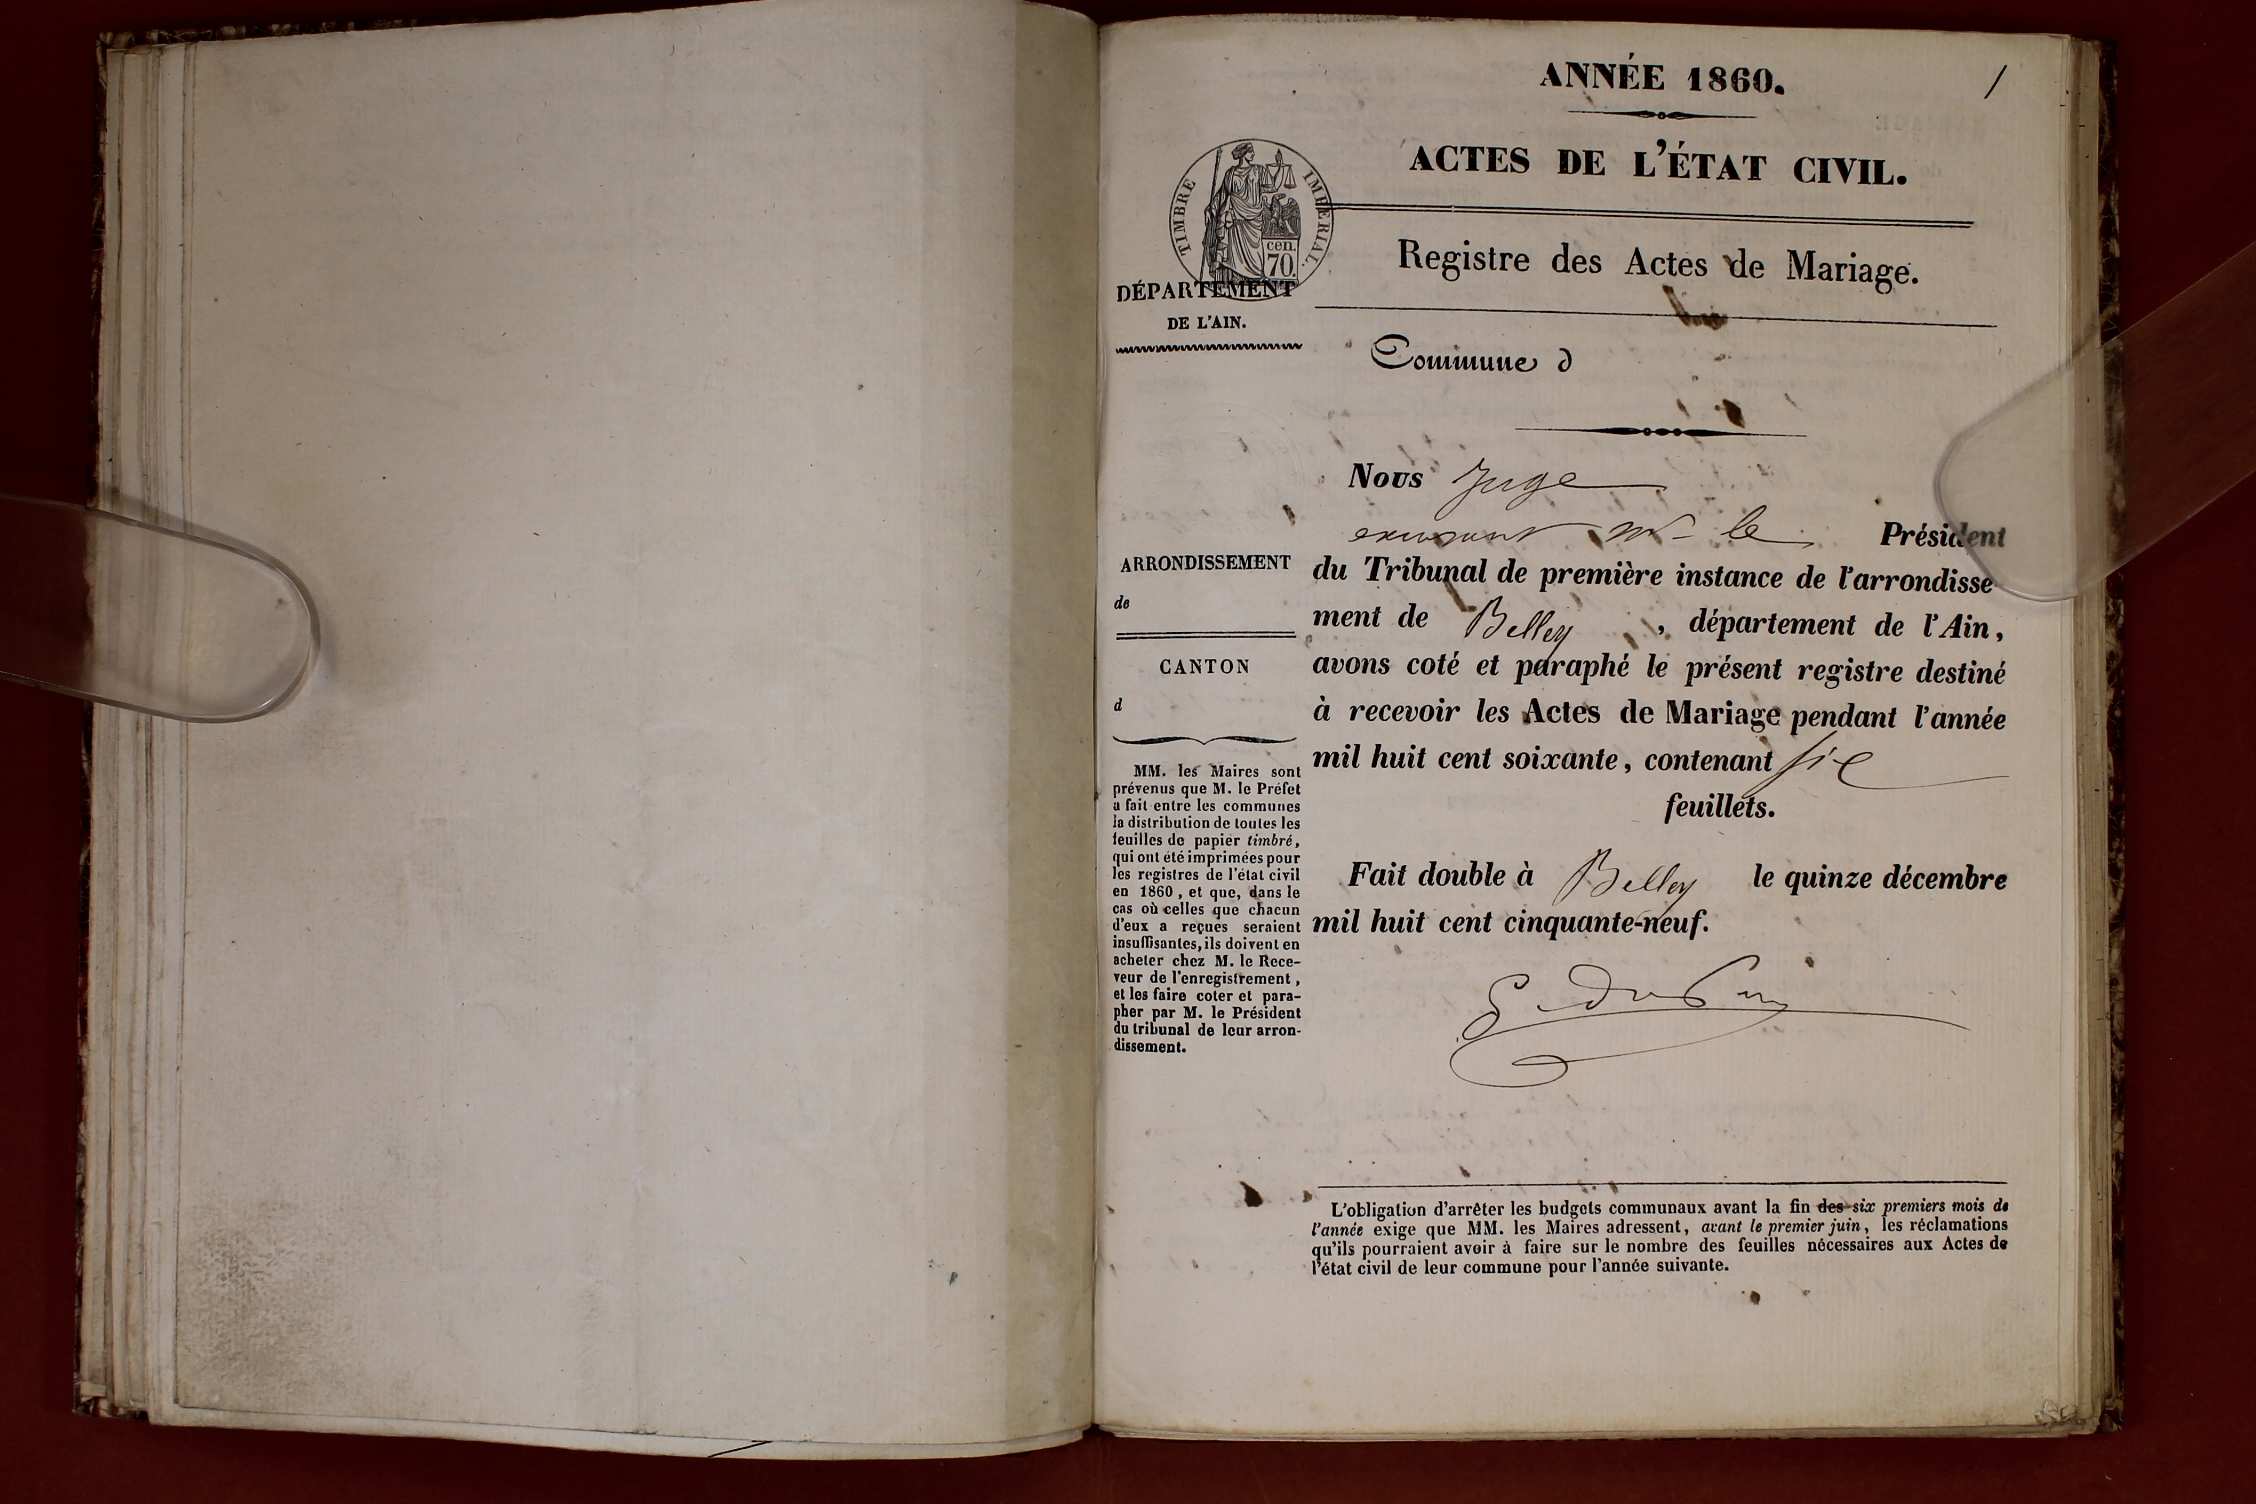 ANNÉE 1860.
1
ACTES DE L'ÉTAT CIVIL.
TIMBRE IMPERIAL.
cen.
70.
Registre des Actes de Mariage.
DÉPARTEMENT
DE L'AIN.
Commune d
Nous Juge
excusant Mr le Président
du Tribunal de première instance de l'arrondisse-
ment de Belley, département de l'Ain,
avons coté et paraphé le présent registre destiné
à recevoir les Actes de Mariage pendant l'année
mil huit cent soixante, contenant six
feuillets.
Fait double à Belley le quinze décembre
mil huit cent cinquante-neuf.
ARRONDISSEMENT
de
CANTON
d
MM. les Maires sont
prévenus que M. le Préfet
a fait entre les communes
la distribution de toutes les
feuilles de papier timbré,
qui ont été imprimées pour
les registres de l'état civil
en 1860, et que, dans le
cas où celles que chacun
d'eux a reçues seraient
insuffisantes, ils doivent en
acheter chez M. le Rece-
veur de l'enregistrement,
et les faire coter et para-
pher par M. le Président
du tribunal de leur arron-
dissement.
L'obligation d'arrêter les budgets communaux avant la fin des six premiers mois de
l'année exige que MM. les Maires adressent, avant le premier juin, les réclamations
qu'ils pourraient avoir à faire sur le nombre des feuilles nécessaires aux Actes de
l'état civil de leur commune pour l'année suivante.